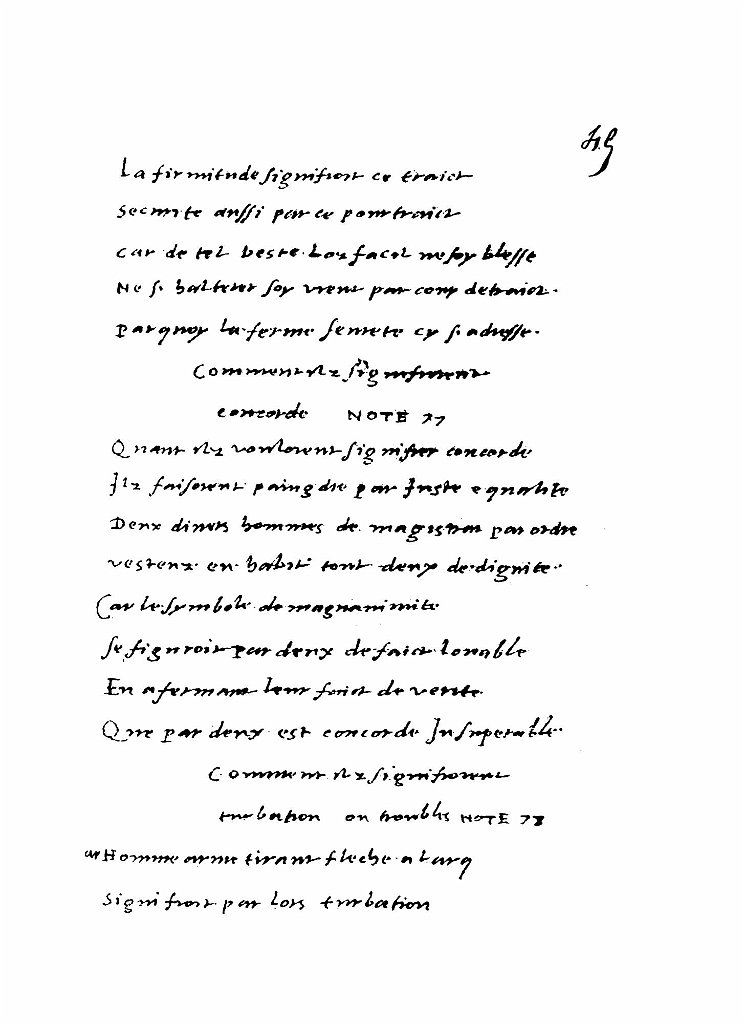 49
La firmitude signifioit ce traict
Securite aussi par ce pourtraict
Car de tel beste Loz facil ne soy blesse
Ne si hal soy vient par coup detraict.
Parquoy la ferme seurete cy s. adresse.
Comment Ilz signifioient
concorde NOTE 77
Quant Ilz vouloient signifier concorde
Ilz faisoient paingdre par Juste equalite
Deux divers hommes de magistrat par ordre
vesteux en habit tout deux de dignite.
Car le symbole de magnanimite
Se figuroit par deux de faict louable
En afermant leur faict de verite
Que par deux est concorde Insuperable.
Comment Ilz signifioient
turbation ou troubles NOTE 78
ung Homme arme tirant fleche a larq
Signifioit par lors turbation